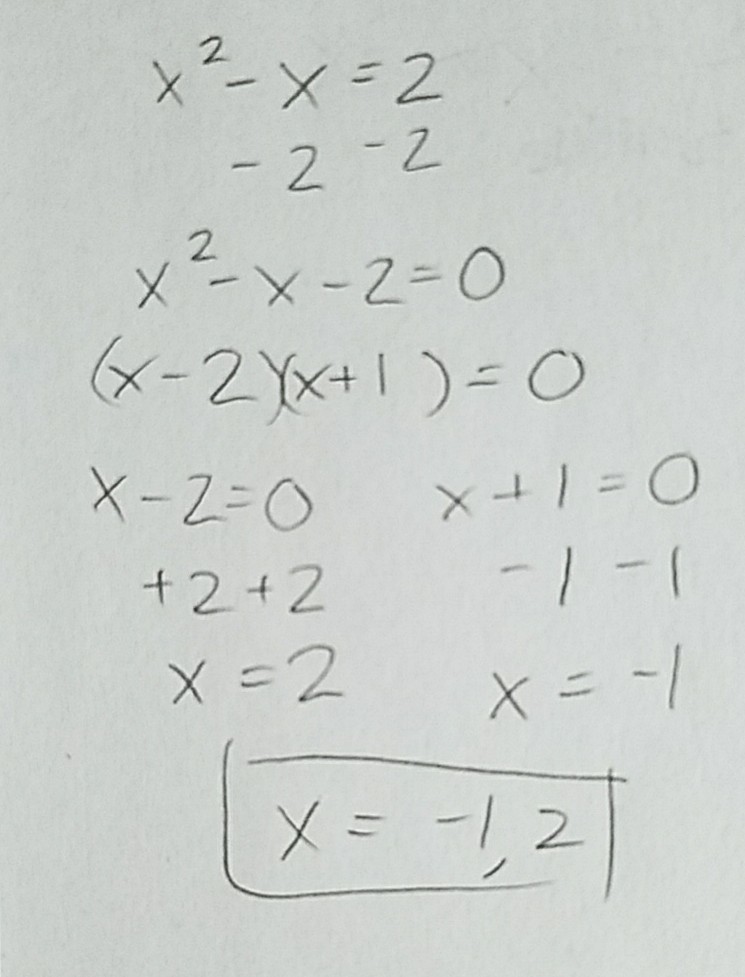 x² - x = 2
- 2 - 2
x² - x - 2 = 0
(x - 2)(x + 1) = 0
x - 2 = 0 x + 1 = 0
+ 2 + 2 - 1 - 1
x = 2 x = -1
x = -1, 2